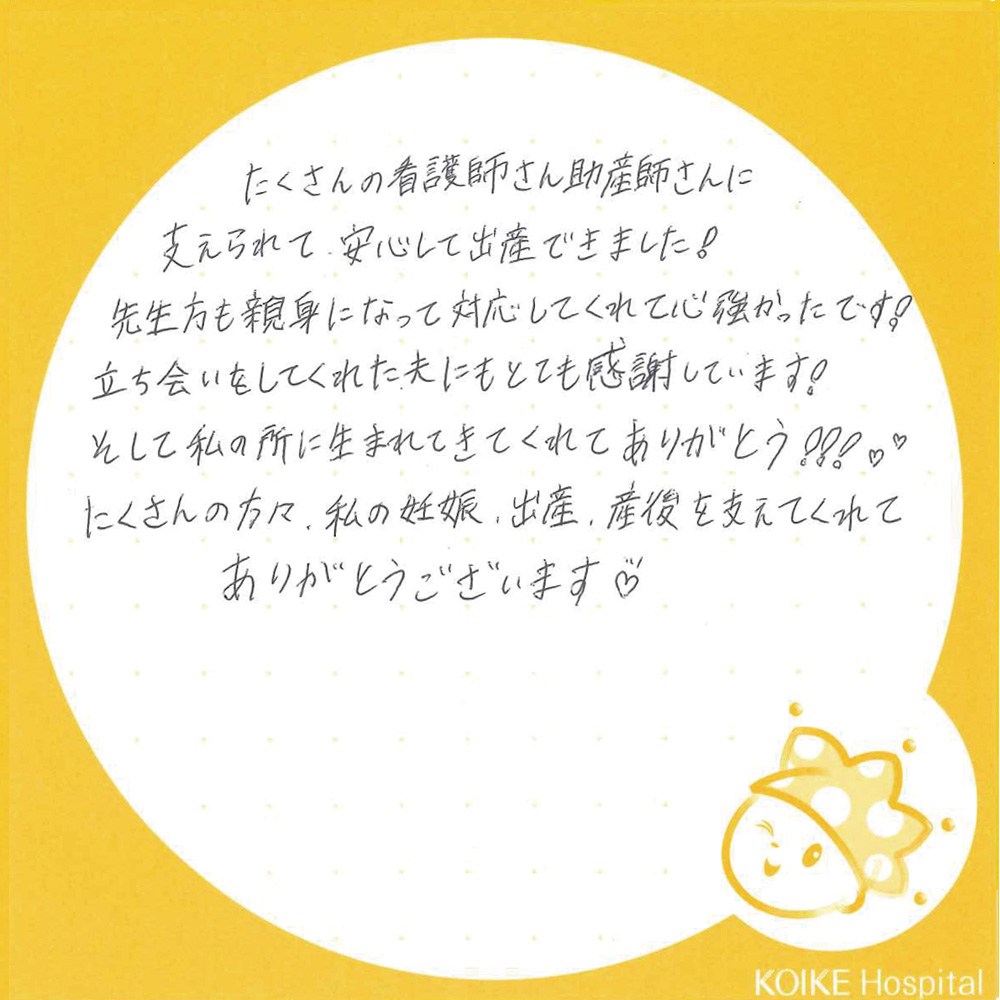 たくさんの看護師さん助産師さんに
支えられて、安心して出産できました!
先生方も親身になって対応してくれて心強かったです!
立ち会いをしてくれた夫にもとても感謝しています!
そして私の所に生まれてきてくれてありがとう!!!♡♡
たくさんの方々、私の妊娠、出産、産後を支えてくれて
ありがとうございます♡
KOIKE Hospital